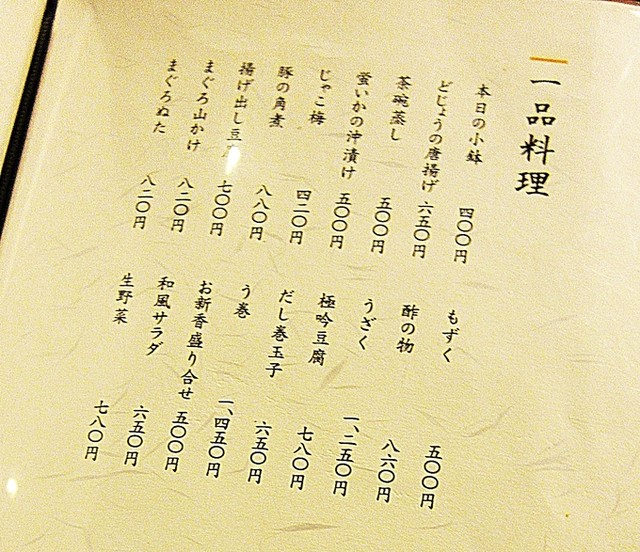 一品料理
本日の小鉢 四〇〇円
どじょうの唐揚げ 六五〇円
茶碗蒸し 五〇〇円
螢いかの沖漬け 五〇〇円
じゃこ梅 四二〇円
豚の角煮 八八〇円
揚げ出し豆腐 七〇〇円
まぐろ山かけ 八二〇円
まぐろぬた 八二〇円
もずく 五〇〇円
酢の物 八六〇円
うざく 一、二五〇円
極吟豆腐 七八〇円
だし巻玉子 六五〇円
う巻 一、四五〇円
お新香盛り合せ 五〇〇円
和風サラダ 六五〇円
生野菜 七八〇円